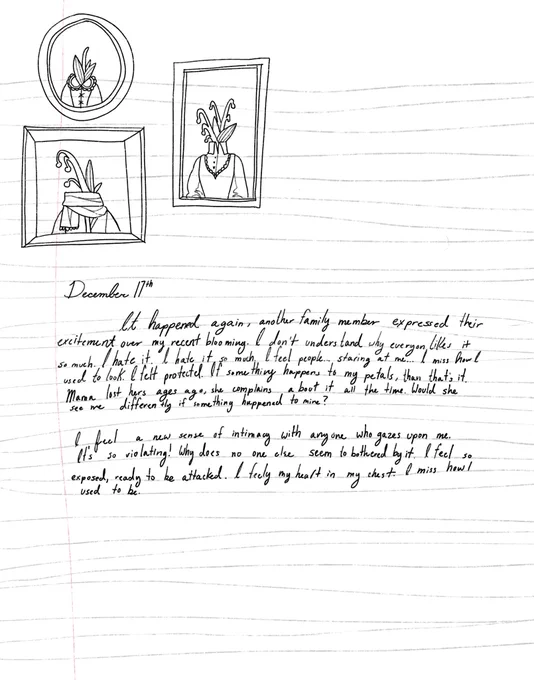 December 17th
It happened again, another family member expressed their
excitement over my recent blooming. I don't understand why everyone likes it
so much. I hate it. I hate it so much, I feel people... staring at me... I miss how I
used to look. I felt protected. If something happens to my petals, than that's it.
Mama lost hers ages ago, she complains about it all the time. Would she
see me differently if something happened to mine?
I feel a new sense of intimacy with anyone who gazes upon me.
It's so violating! Why does no one else seem to bothered by it. I feel so
exposed, ready to be attacked. I feely my heart in my chest. I miss how I
used to be.